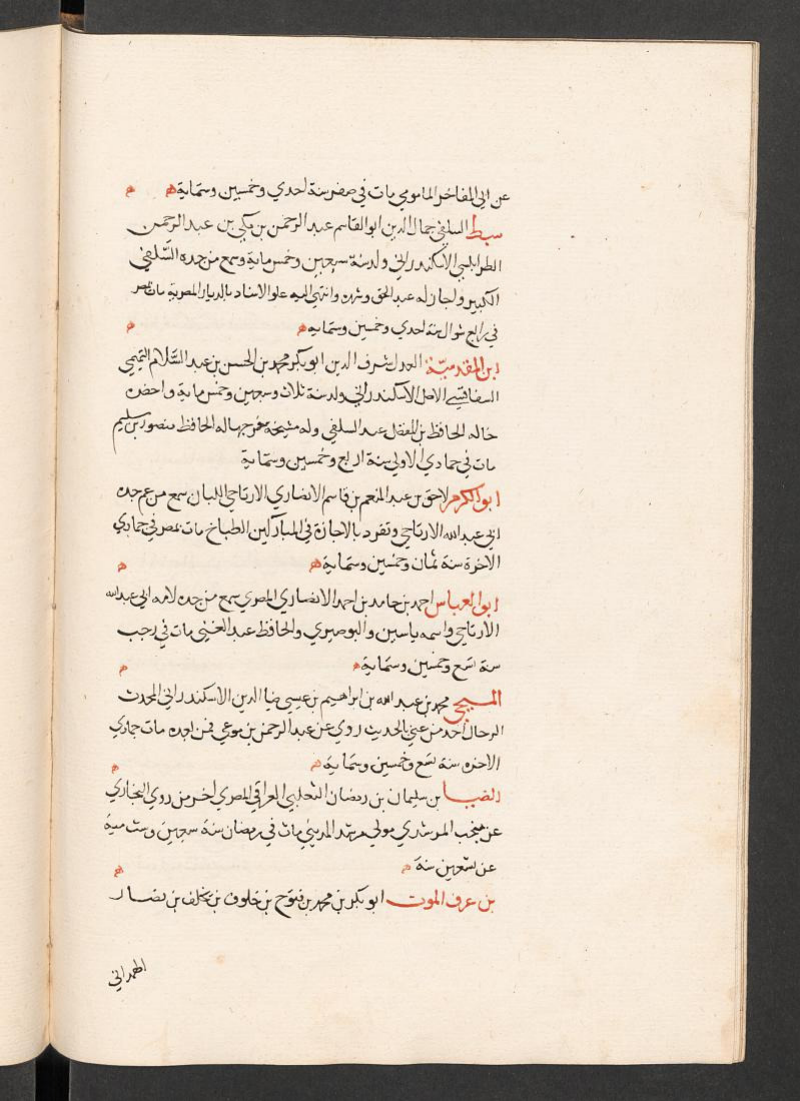 عن ابي المفاخر الماموني مات في صفر سنة احدي وخمسين وستماية ه ه
سبط السلفي جمال الدين ابو القاسم عبد الرحمن بن مكي بن عبد الرحمن
الطرابلسي الاسكندراني ولد سنة سبعين وخمس ماية وسمع من جده السلفي
الكبير واجاز له عبد الحق وشهده وانتهي اليه علو الاسناد بالديار المصرية مات بمصر
في رابع شوال سنة احدي وخمسين وستمايه ه ه
ابن المقدسية العدل شرف الدين ابو بكر محمد بن الحسن بن عبد السلام التميمي
السفاقسي الاصل الاسكندراني ولد سنة ثلاث وسبعين وخمس ماية واحضره
خاله الحافظ بن المفضل عند السلفي وله مشيخة خرجها له الحافظ منصور بن سليم
مات في جمادي الاولي سنة اربع وخمسين وستماية
ابو الكرم لاحق بن عبد المنعم بن قاسم الانصاري الارتاحي اللبان سمع من عم جده
ابي عبد الله الارتاحي وتفرد بالاجازة في المبارك بن الطباخ مات بمصر في جمادي
الاخرة سنة ثمان وخمسين وستماية ه ه
ابو العباس احمد بن حامد بن احمد الانصاري المصري سمع من جده لامه ابي عبد الله
الارتاحي واسمه ياسين والبوصيري والحافظ عبد الغني مات في رجب
سنة تسع وخمسين وستماية ه ه
محمد بن عبد الله بن ابراهيم بن عيسي ضيا الدين الاسكندراني المحدث
الرحال احد من عني الحديث روي عن عبد الرحمن بن فمن بعده مات جمادي
الاخره سنة تسع وخمسين وستماية ه ه
الضيا بن سليمان بن رمضان الثعلبي العراقي المصري اخر من روي البخاري
عن منجب المرشدي مولي مرشد المديني مات في رمضان سنة سبعين وست مية
عن تسعين سنة ه ه
بن عرف الموت ابو بكر بن محمد بن فتوح بن خلوف بن يخلف بن نصار
الهمداني